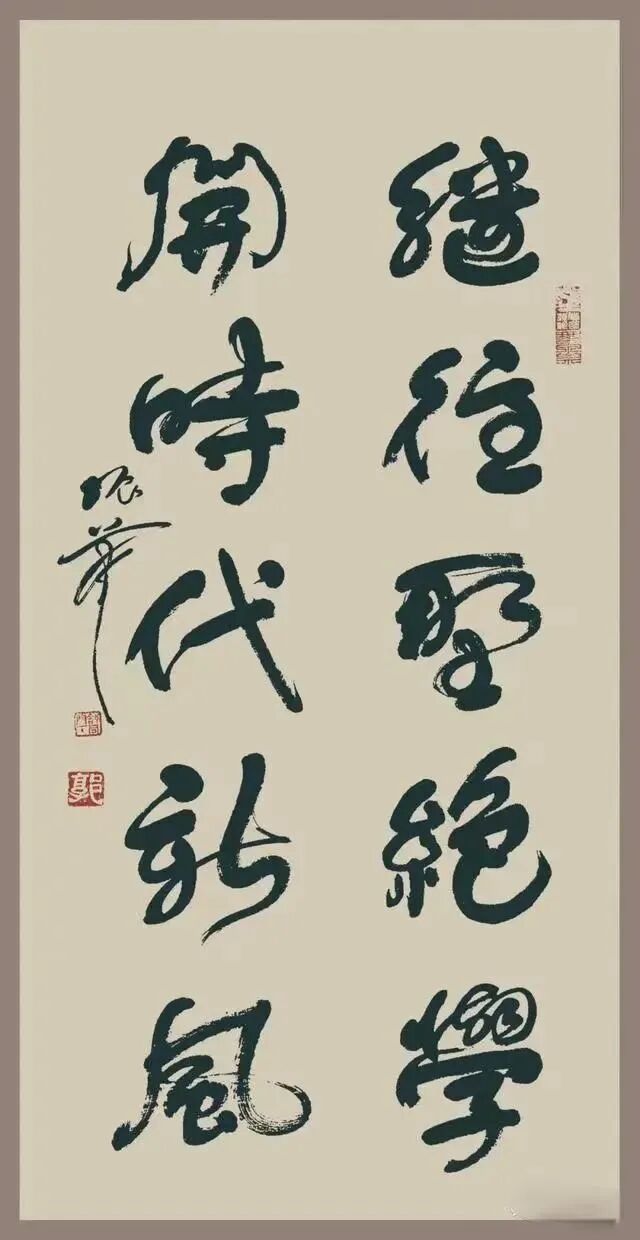 繼往聖絕學
開時代新風
振華
郭